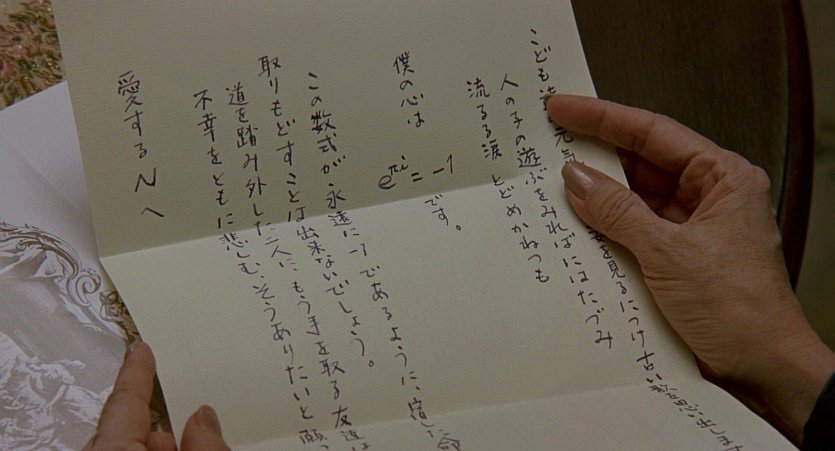 こども達の元気 姿を見るにつけ古い
人の子の遊ぶをみればにはたづみ
流るる涙とどめかねつも
僕の心は e^πi = -1 です。
この数式が永遠に-1であるように、宿した命
取りもどすことは出来ないでしょう。
道を踏み外した二人に、もう手を取る友達は
不幸をともに悲しむ、そうありたいと願
愛するNへ